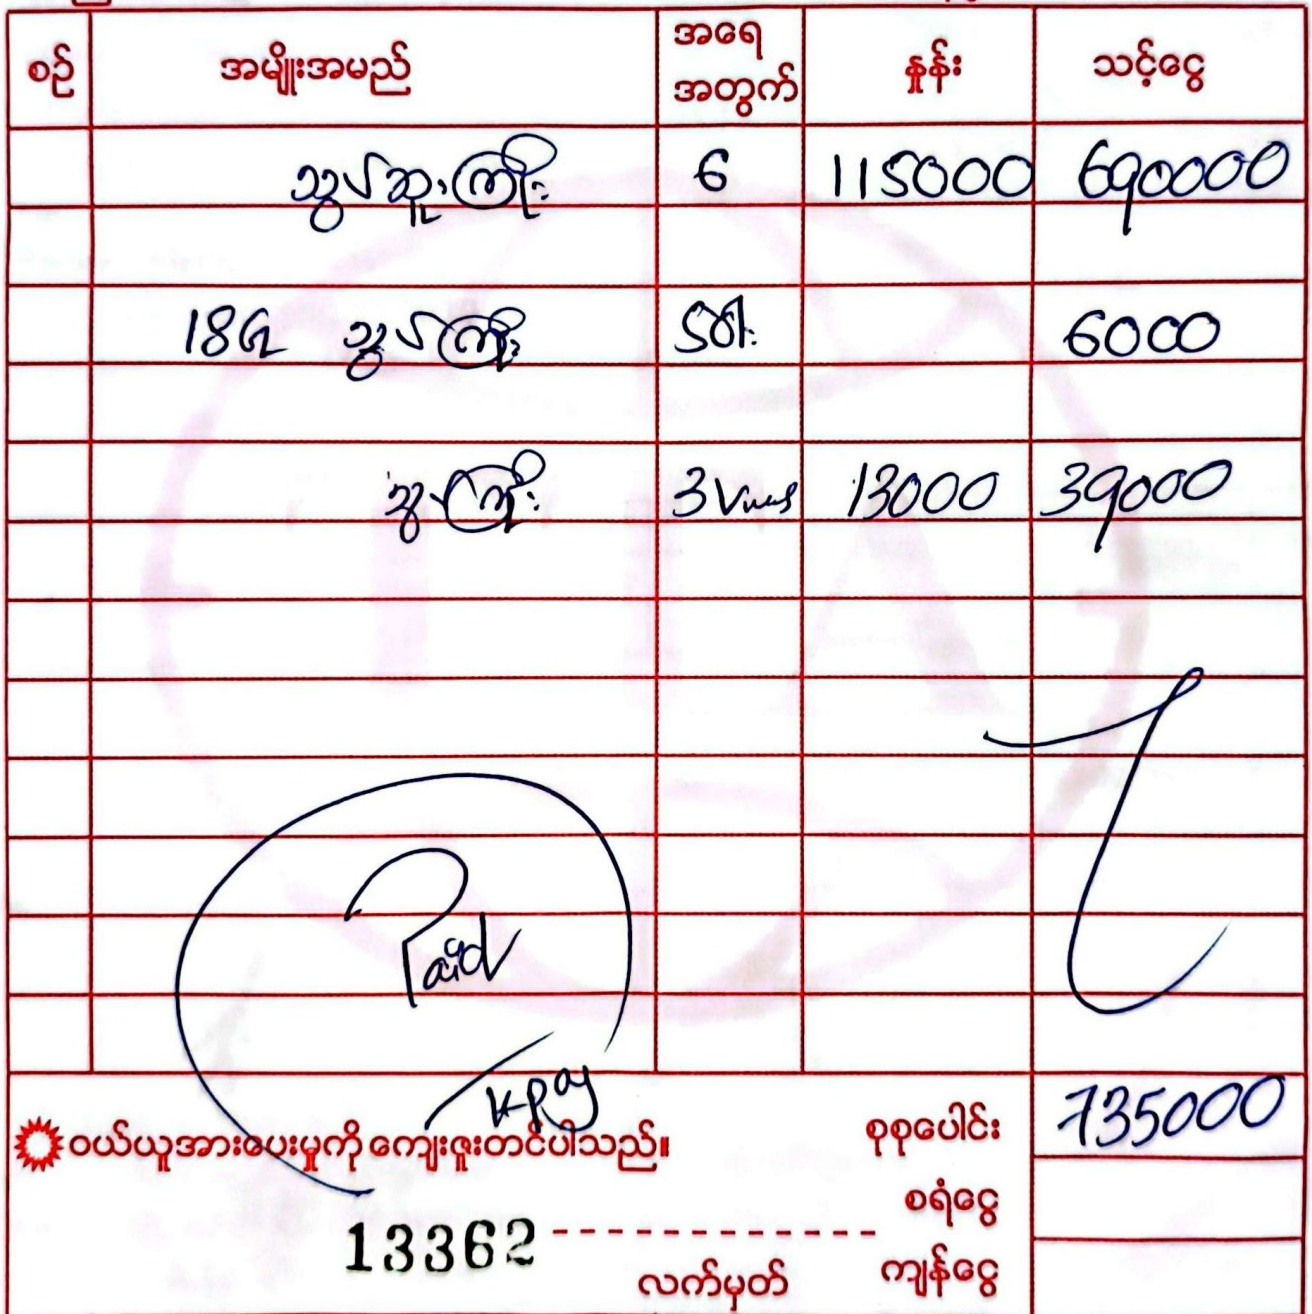 စဉ် အမျိုးအမည် အရေအတွက် နှုန်း သင့်ငွေ
သွပ်ဆူးကြိုး 6 115000 690000
18G သွပ်ကြိုး 50ါး 6000
သွပ်ကြိုး 3 13000 39000
Paid
Kpay
735000
ဝယ်ယူအားပေးမှုကို ကျေးဇူးတင်ပါသည်။ စုစုပေါင်း
စရံငွေ
13362
လက်မှတ် ကျန်ငွေ